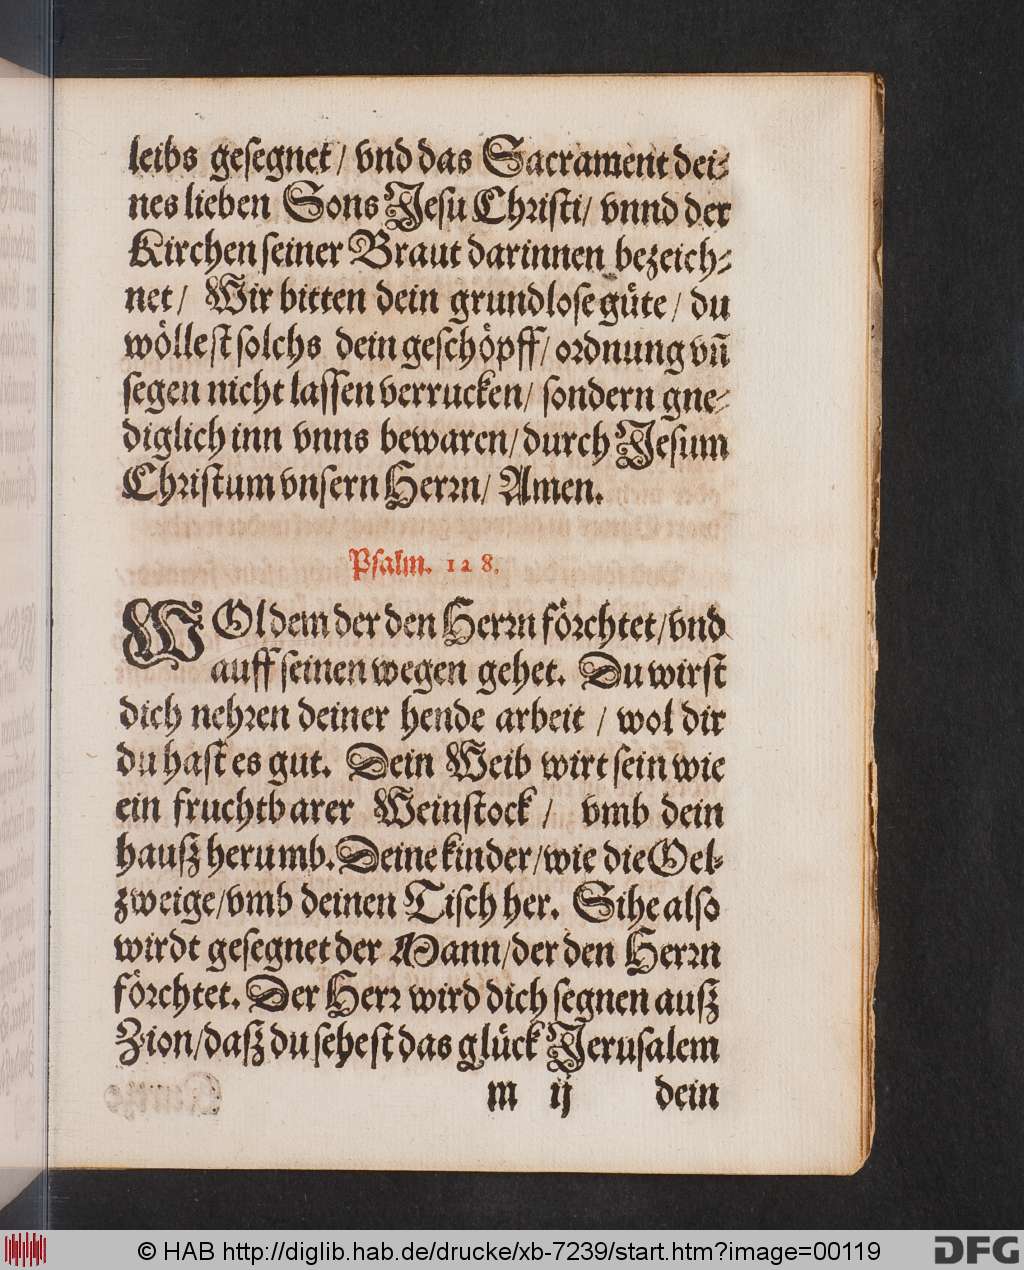 leibs gesegnet/ vnd das Sacrament dei-
nes lieben Sons Jesu Christi/ vnnd der
Kirchen seiner Braut darinnen bezeich-
net/ Wir bitten dein grundlose güte/ du
wöllest solchs dein geschöpff/ ordnung vñ
segen nicht lassen verrucken/ sondern gne-
diglich inn vnns bewaren/ durch Jesum
Christum vnsern Herrn/ Amen.
Psalm. 128.
WOl dem der den Herrn förchtet/ vnd
auff seinen wegen gehet. Du wirst
dich nehren deiner hende arbeit / wol dir
du hast es gut. Dein Weib wirt sein wie
ein fruchtbarer Weinstock / vmb dein
hausz herumb. Deine kinder/ wie die Oel-
zweige/ vmb deinen Tisch her. Sihe also
wirdt gesegnet der Mann/ der den Herrn
förchtet. Der Herr wird dich segnen ausz
Zion/ dasz du sehest das glück Jerusalem
m ij dein
© HAB http://diglib.hab.de/drucke/xb-7239/start.htm?image=00119
DFG